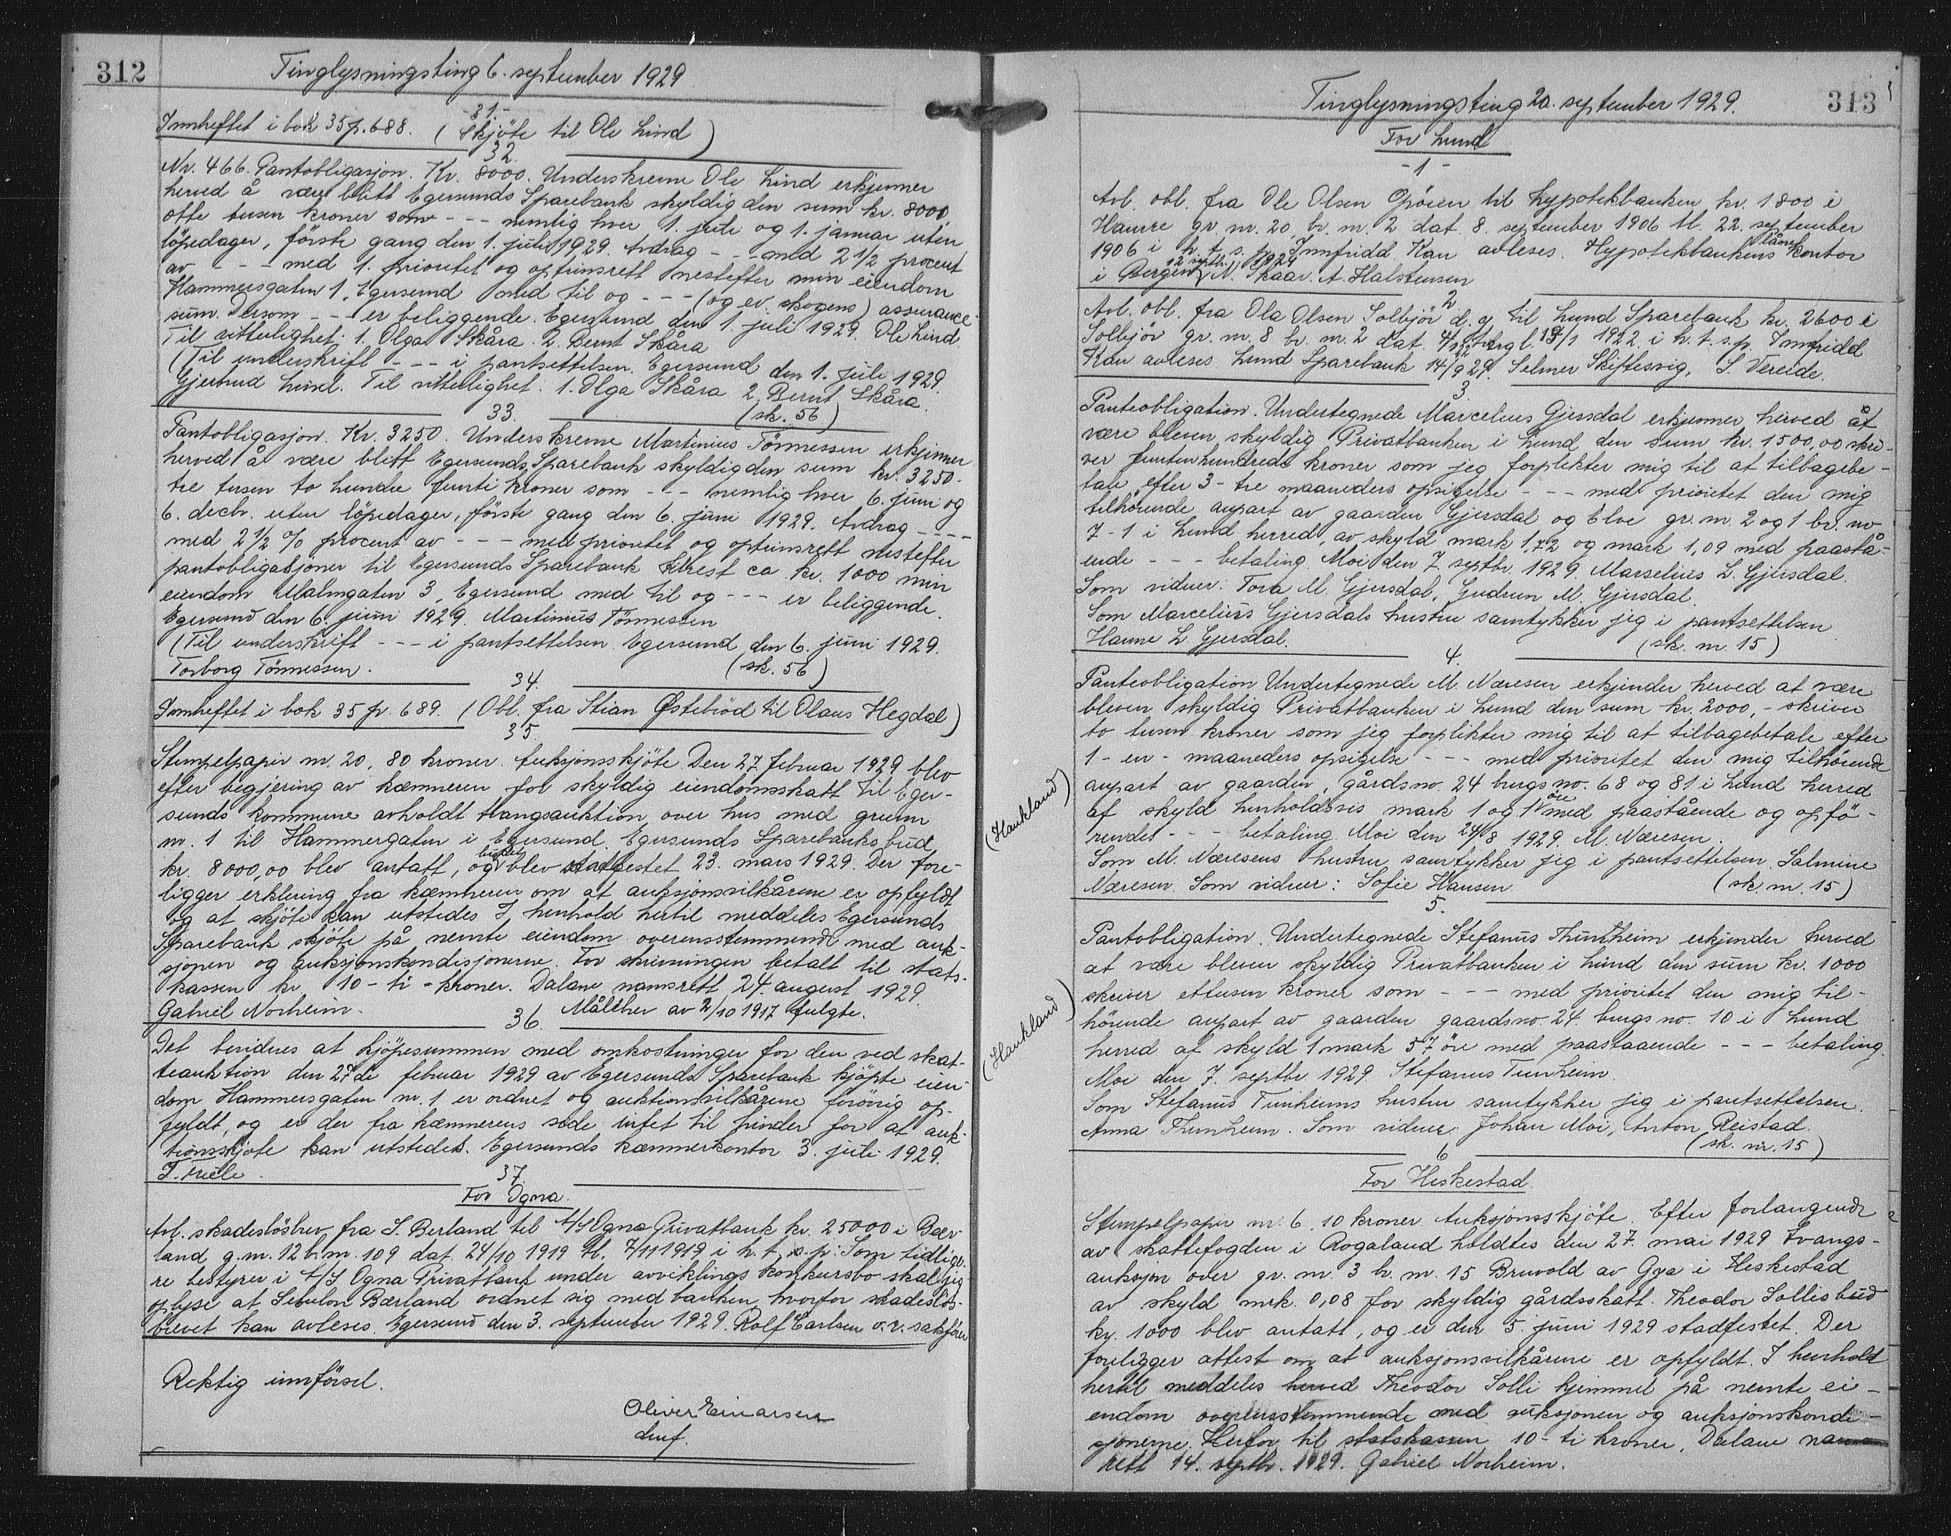 312
Tinglysningsting 6. september 1929
31.
Innheftet i bok 35 p. 688. (Skjöte til Ole Lind)
32.
Nr. 466. Pantobligasjon. Kr. 8000. Underskrevne Ole Lind erkjenner
herved å være blitt Egersunds Sparebank skyldig den sum kr. 8000
otte tusen kroner som - - - nemlig hver 1. juli og 1. januar uten
löpedager, förste gang den 1. juli 1929. Avdrag - - - med 2 1/2 procent
av - - - med 1. prioritet og optrinsrett nestefter min eiendom
Hammersgaten 1, Egersund med til og - - - (og ev. skogens) assurance
sum. Dersom - - - er beliggende. Egersund den 1. juli 1929. Ole Lind.
Til vitterlighet: 1. Olga Skåra. 2. Bernt Skåra
(Til underskrift - - - i pantsettelsen. Egersund den 1. juli 1929.
Gjertrud Lind. Til vitterlighet. 1. Olga Skåra 2. Bernt Skåra.
33. (sk. 56)
Pantobligasjon. Kr. 3250. Underskrevne Martinius Tönnessen erkjenner
herved å være blitt Egersunds Sparebank skyldig den sum kr. 3250.-
tre tusen to hundre femti kroner som - - - nemlig hver 6. juni og
6. decbr. uten löpedager, förste gang den 6. juni 1929. Avdrag - - -
med 2 1/2 % procent av - - - med prioritet og optrinsrett nestefter
pantobligasjoner til Egersunds Sparebank Rest ca kr. 1000 min
eiendom Malmgaten 3, Egersund med til og - - - er beliggende.
Egersund den 6. juni 1929. Martinius Tönnessen
(Til underskrift - - - i pantsettelsen. Egersund den 6. juni 1929.
Torborg Tönnessen. (sk. 56)
34.
Innheftet i bok 35 p. 689. (Obl. fra Stian Østebröd til Olaus Hegdal)
35.
Stempelpapir nr. 20, 80 kroner. Auksjonsskjöte. Den 27. februar 1929 blev
efter begjering av kæmneren for skyldig eiendomsskatt til Eger-
sunds kommune avholdt tvangsauktion over hus med grunn
nr. 1 til Hammergaten i Egersund. Egersunds Sparebanks bud,
kr. 8000,00 blev antatt, og budet blev stadfestet 23. mars 1929. Der fore-
ligger erklæring fra kæmneren om at auksjonsvilkårene er opfyldt
og at skjöte kan utstedes. I henhold hertil meddeles Egersunds
Sparebank skjöte på nevnte eiendom overensstemmende med auk-
sjonen og auksjonskondisjonerne. For skrivningen betalt til stats-
kassen kr. 10 - ti - kroner. Dalane namsrett 24. august 1929.
Gabriel Norheim. Målebrev av 2/10 1917 fulgte.
36.
Det bevidnes at kjöpesummen med omkostninger for den ved skat-
teauktion den 27de februar 1929 av Egersunds Sparebank kjöpte eien-
dom Hammersgaten nr. 1 er ordnet og auktionsvilkårene forövrig op-
fyldt, og er der fra kæmnerens side intet til hinder for at auk-
tionsskjöte kan utstedes. Egersunds kæmnerkontor 3. juli 1929.
37.
For Ogna.
Avl. skadeslösbrev fra S. Berland til A/S Ogna Privatbank kr. 25000 i Bær-
land g. nr. 12 b. nr. 109 dat. 24/10 1919 tl. 7/11 1919 i h. t. s. p: Som tidlige-
re bestyrer i A/S Ogna Privatbank under avviklings konkursbo skal jeg
oplyse at Sevulon Bærland ordnet sig med banken hvorfor skadeslös-
brevet kan avleses. Egersund den 3. september 1929. Rolf Carlsen o.r. sakförer
Riktig innförsel.
Oliver Einarsen
dmf.
Tinglysningsting 20. september 1929.
313
For Lund
- 1 -
Avl. obl. fra Ole Olsen Opöien til Hypotekbanken kr. 1800 i
Haure gr. nr. 20 br. nr. 2 dat. 8. september 1906 tl. 22. september
1906 i h. t. s. p. Innfridd Kan avleses. Hypotekbankens lånekontor
i Bergen 12 septbr. 1929 N. Skaar. A. Halstensen
2
Avl. obl. fra Ola Olsen Solbjör d. y. til Lund Sparebank kr. 2600 i
Solbjör gr. nr. 8 br. nr. 2 dat. 4/1 22 tingl. 13/1 1922 i h. t. s. p. Innfridd
Kan avleses Lund Sparebank 14/9 29. Selmer Skiftesvig, S. Vereide.
3.
Panteobligation. Undertegnede Marcelius Gjersdal erkjenner herved at
være bleven skyldig Privatbanken i Lund den sum kr. 1500,00 skri-
ver femtenhundrede kroner som jeg forplikter mig til at tilbagebe-
tale efter 3 - tre maaneders opsigelse - - - med prioritet den mig
tilhörende anpart av gaarden Gjersdal og Eloe gr. nr. 2 og 1 br. no
7 - 1 i Lund herred av skyld mark 1,72 og mark 1,09 med paastå-
ende - - - betaling. Moi den 7. septbr. 1929. Marselius L. Gjersdal.
Som vidner: Tora M. Gjersdal, Gudrun M. Gjersdal.
Som Marcelius Gjersdals hustru samtykker jeg i pantsettelsen.
Hanne L. Gjersdal. (sk. nr. 15)
4.
Panteobligation Undertegnede M. Næresen erkjender herved at være
bleven skyldig Privatbanken i Lund den sum kr. 2000,- skriver
to tusen kroner som jeg forplikter mig til at tilbagebetale efter
1 - en - maaneders opsigelse - - - med prioritet den mig tilhörende
(Haukland)
anpart av gaarden, gårdsno. 24 brugsno. 68 og 81 i Lund herred
af skyld henholdsvis mark 1 og 1 öre med paastående og opfö-
rendet - - - betaling. Moi den 24/8 1929. M. Næresen.
Som M. Næresens hustru samtykker jeg i pantsettelsen. Salmine
Næresen. Som vidner: Sofie Hansen (sk. nr. 15)
5.
Pantobligation. Undertegnede Stefanus Thunheim erkjender herved
at være bleven skyldig Privatbanken i Lund den sum kr. 1000
(Haukland)
skriver ettusen kroner som - - - med prioritet den mig til-
hörende anpart av gaarden gaardsno. 24. brugsno. 10 i Lund
herred af skyld 1 mark 57 öre med paastaaende - - - betaling.
Moi den 7. septbr 1929. Stefanus Tunheim.
Som Stefanus Tunheims hustru samtykker jeg i pantsettelsen.
Anna Thunheim. Som vidner. Johan Moi, Anton Reistad.
(sk. nr. 15)
6
For Heskestad.
Stempelpapir nr. 6. 10 kroner. Auksjonsskjöte. Efter forlangende
av skattefogden i Rogaland holdtes den 27. mai 1929 tvangs-
auksjon over gr. nr. 3 br. nr. 15 Bruvold av Gya i Heskestad
av skyld mrk. 0,08 for skyldig gårdsskatt. Theodor Sollis bud
kr. 1000 blev antatt, og er den 5. juni 1929 stadfestet. Der
foreligger attest om at auksjonsvilkårene er opfyldt. I henhold
hertil meddeles herved Theodor Solli hjemmel på nevnte ei-
endom overensstemmende med auksjonen og auksjonskondi-
sjonerne. Herfor til statskassen 10 - ti kroner. Dalane nams-
rett 14. septbr. 1929. Gabriel Norheim.